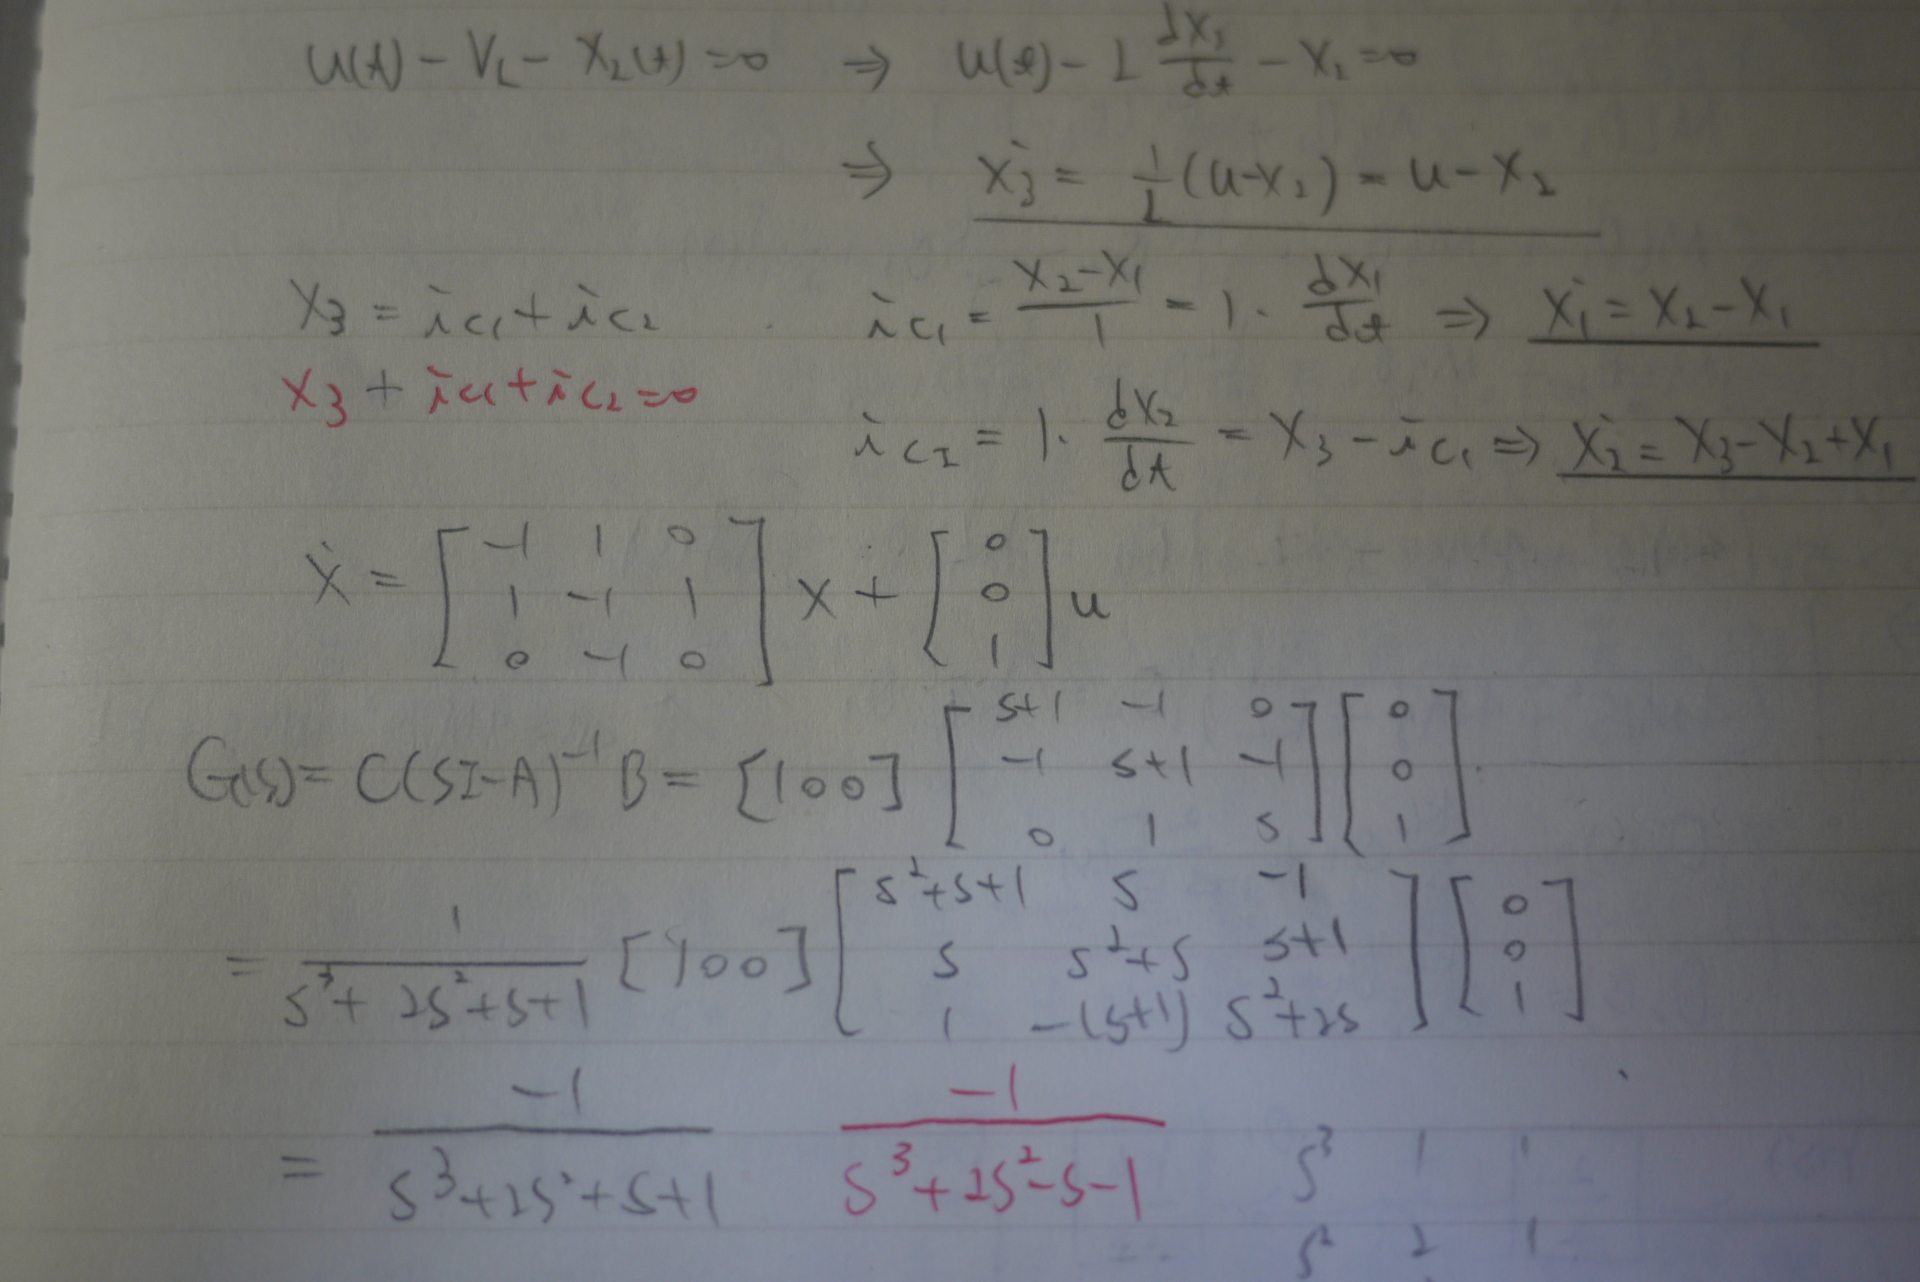 u(t) - V_L - X_2(t) = 0 ⇒ u(t) - L dX_3/dt - X_2 = 0
⇒ Ẋ_3 = 1/L (u - X_2) = u - X_2
X_3 = i_{C1} + i_{C2} i_{C1} = (X_2 - X_1)/1 = 1 · dX_1/dt ⇒ Ẋ_1 = X_2 - X_1
X_3 + i_{C1} + i_{C2} = 0
i_{C2} = 1 · dX_2/dt = X_3 - i_{C1} ⇒ Ẋ_2 = X_3 - X_2 + X_1
Ẋ = [-1 1 0; 1 -1 1; 0 -1 0] X + [0; 0; 1] u
G(s) = C(SI-A)^{-1} B = [1 0 0] [s+1 -1 0; -1 s+1 -1; 0 1 s] [0; 0; 1]
= 1/(s^3 + 2s^2 + s + 1) [1 0 0] [s^2+s+1 s -1; s s^2+s s+1; 1 -(s+1) s^2+2s] [0; 0; 1]
= -1/(s^3 + 2s^2 + s + 1) -1/(s^3 + 2s^2 - s - 1) s^3 1 1
s^2 2 1